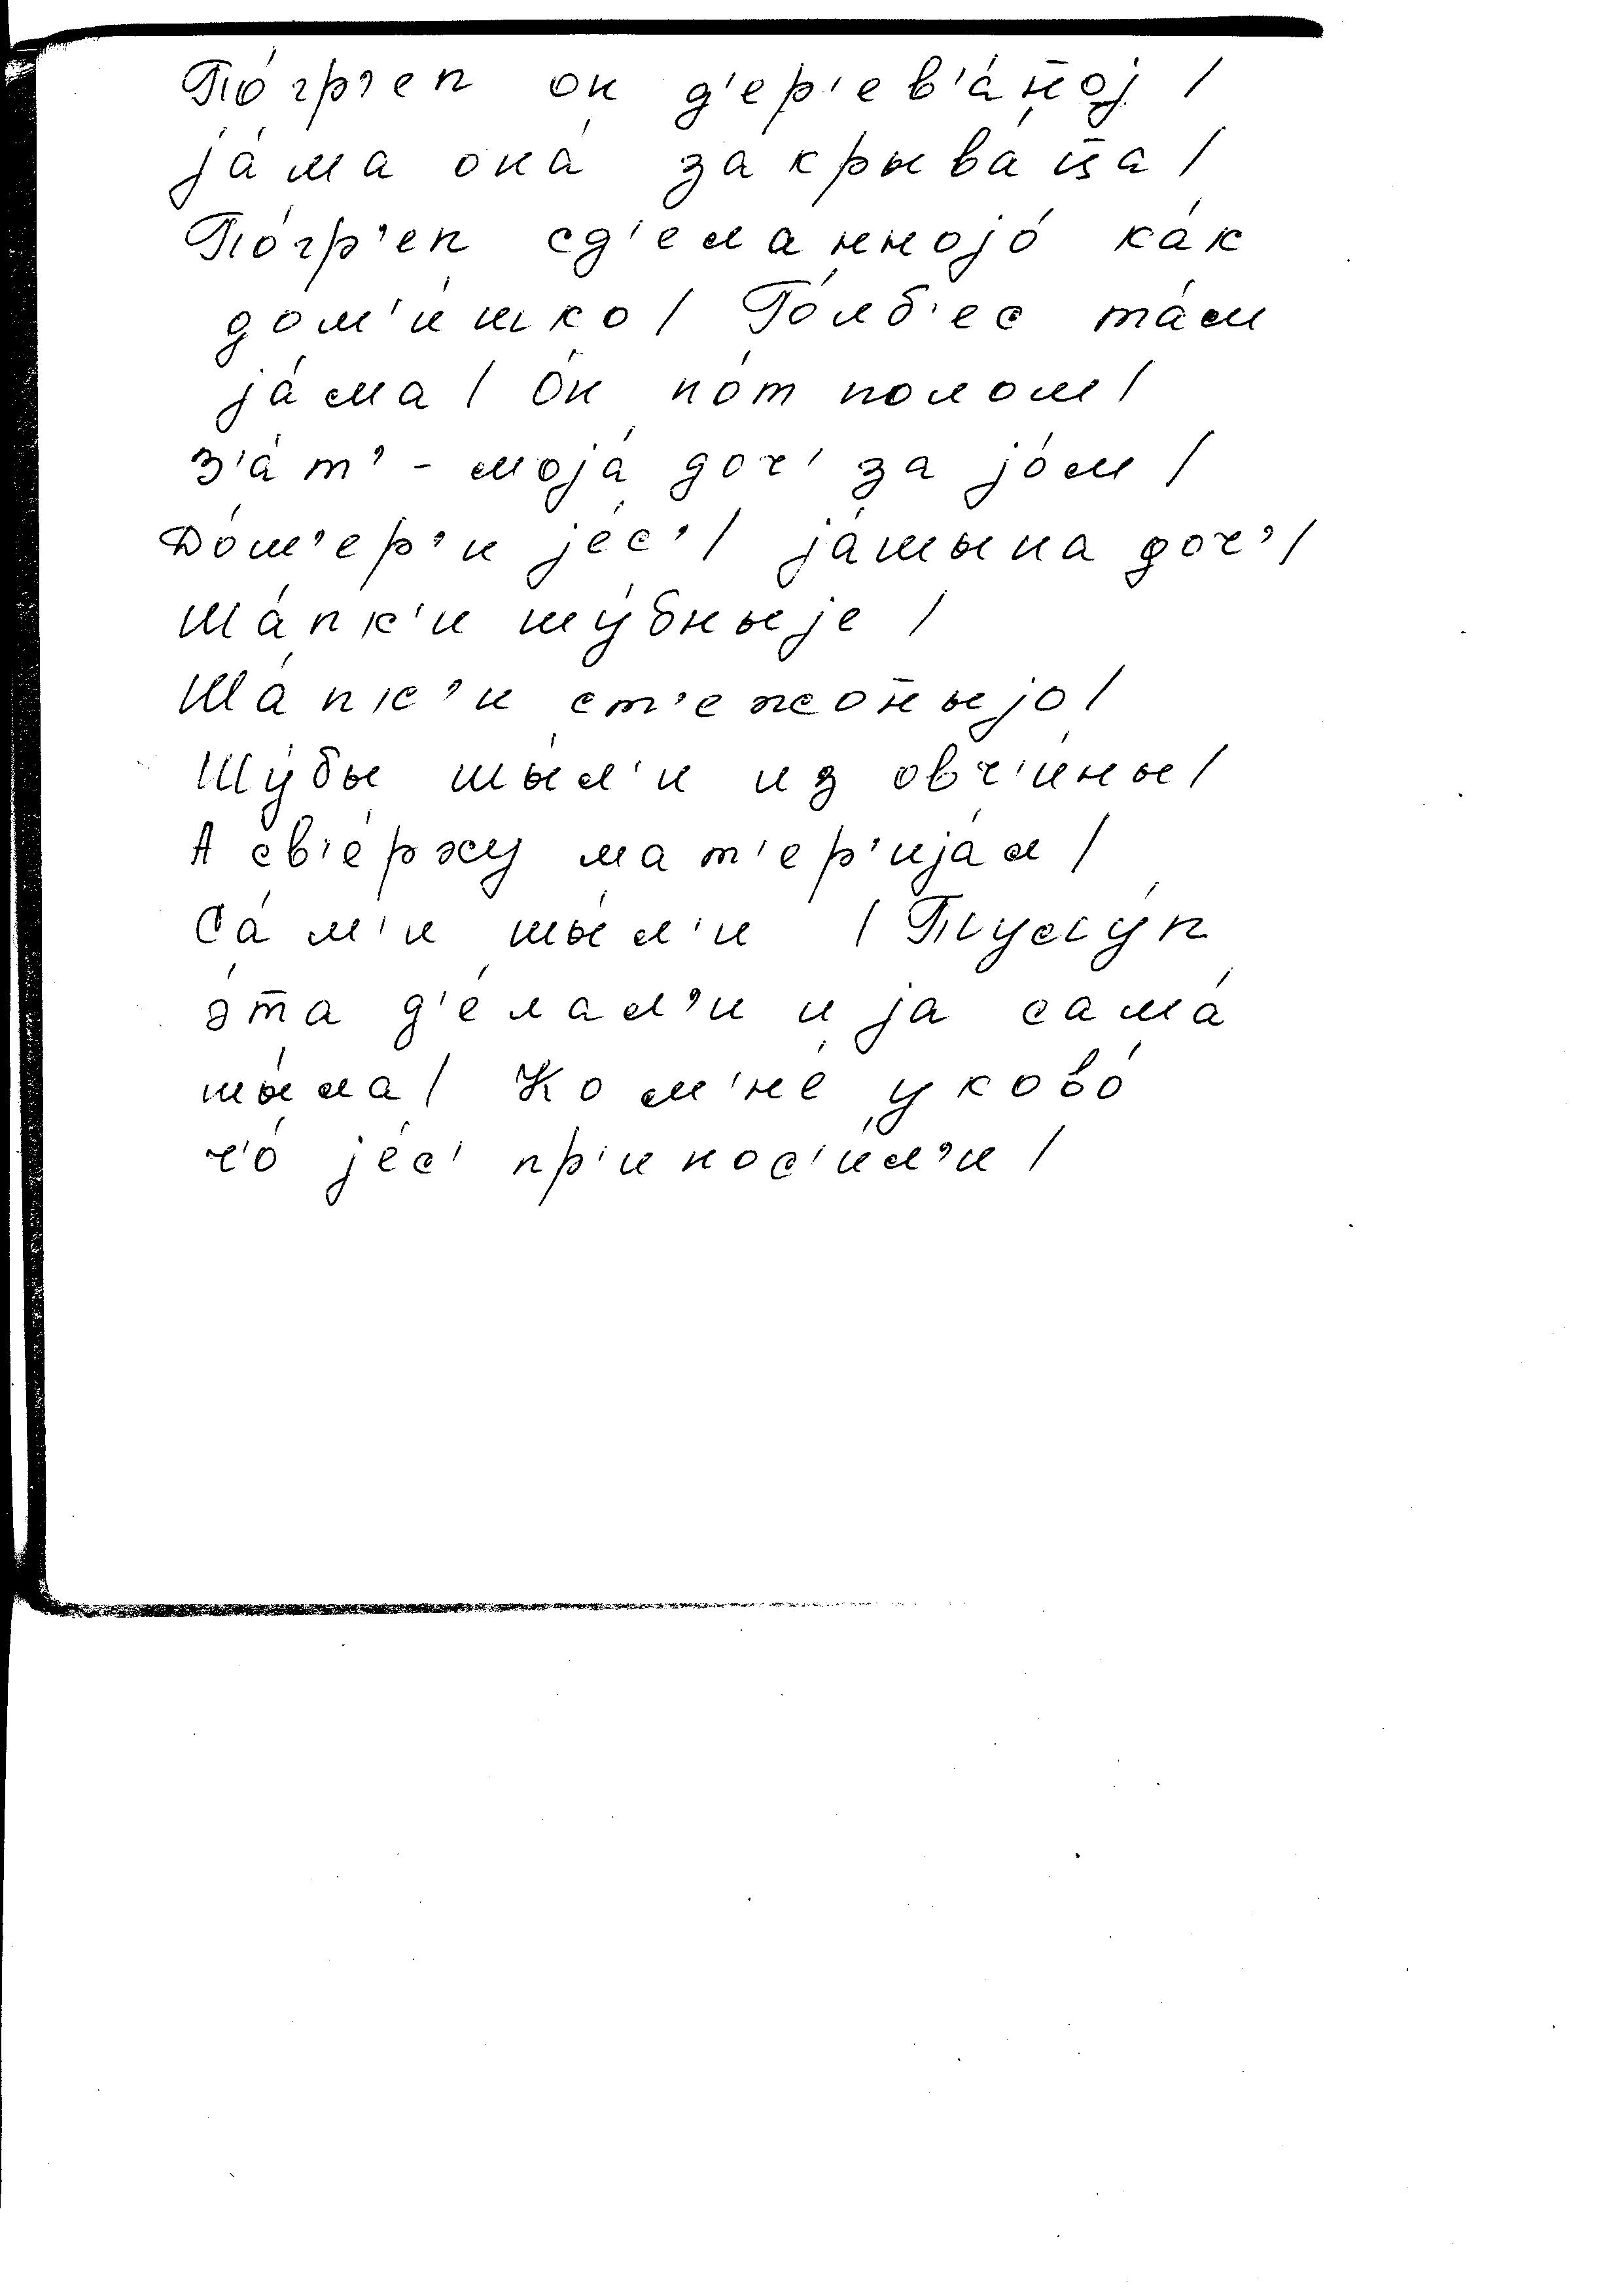 По́гр'еп он д'ер'ев'а́н̄ој /
ја́ма она́ закрыва́ц̄а /
По́гр'еп сд'еланнојо́ ка́к
дом'и́шко / Го́лб'ес та́м
ја́ма / О́н по́т полом /
З'а́т' - моја́ доч' за јо́м /
До́ш'ер'и је́с' / ја́шына доч' /
Ша́пк'и шу́бныје /
Ша́пк'и ст'ежон̄ыјо /
Шу́бы шы́л'и из овч'и́ны /
А св'е́рху мат'ер'ија́л /
Са́м'и шы́л'и / Тулу́п
э́та д'е́лал'и и ја сама́
шы́ла / Ко м'не́ у ково́
ч'о́ је́с' пр'инос'и́л'и /